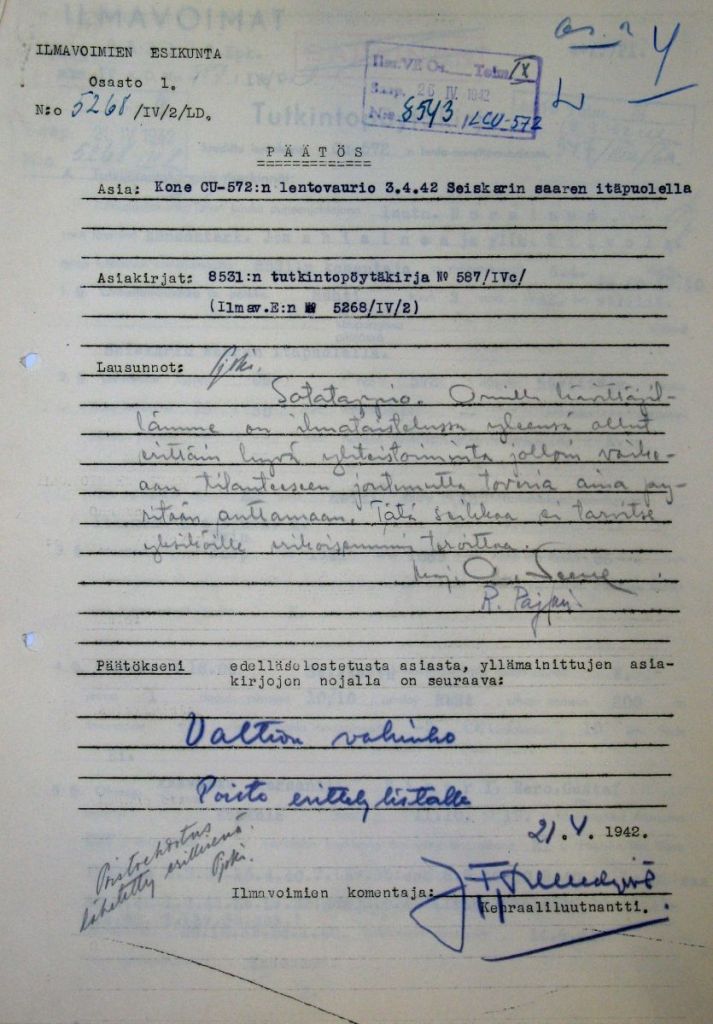 ILMAVOIMIEN ESIKUNTA
Osasto 1.
N:o 5268/IV/2/LD.
Ilm.VE Os. Teks/IX
Saap. 26 IV 1942
N:o 8543 /LCU-572
PÄÄTÖS
Asia: Kone CU-572:n lentovaurio 3.4.42 Seiskarin saaren itäpuolella
Asiakirjat: 8531:n tutkintopöytäkirja № 587/IVc/
(Ilmav.E:n № 5268/IV/2)
Lausunnot:
Sotatappio. Omilla hävittäjil-
lämme on ilmataistelussa yleensä ollut
erittäin hyvä yhteistoiminta jolloin vaike-
aan tilanteeseen joutunutta toveria aina py-
ritään auttamaan. Tätä seikkaa ei tarvitse
yksiköille erikoisemmin teroittaa.
maj. O. Seeve
R. Pajari
Päätökseni edelläselostetusta asiasta, yllämainittujen asia-
kirjojen nojalla on seuraava:
Valtion vahinko
Poisto erittelylistalle
21.4. 1942.
Poistoehdotus
lähetetty erikseen.
Ilmavoimien komentaja:
Kenraaliluutnantti.